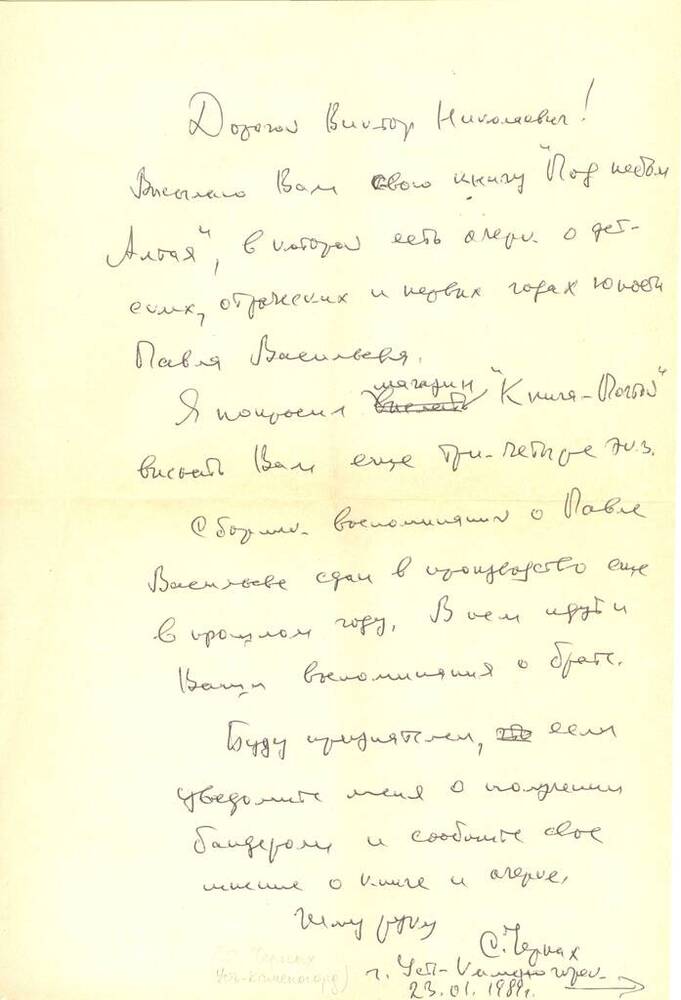 Дорогой Виктор Николаевич!
Высылаю Вам свою книгу "Под небом
Алтая", в которой есть очерк о дет-
ских, отроческих и первых годах юности
Павла Васильева.
Я попросил магазин "Книга-Почтой"
выслать Вам еще три-четыре экз.
Сборник воспоминаний о Павле
Васильеве сдан в производство еще
в прошлом году. В нем идут и
Ваши воспоминания о брате.
Буду признателен, если
уведомите меня о получении
бандероли и сообщите свое
мнение о книге и очерке.
Жму руку
С. Черных
г. Усть-Каменогорск
23.01.1989г.
Черных
Усть-Каменогорск)